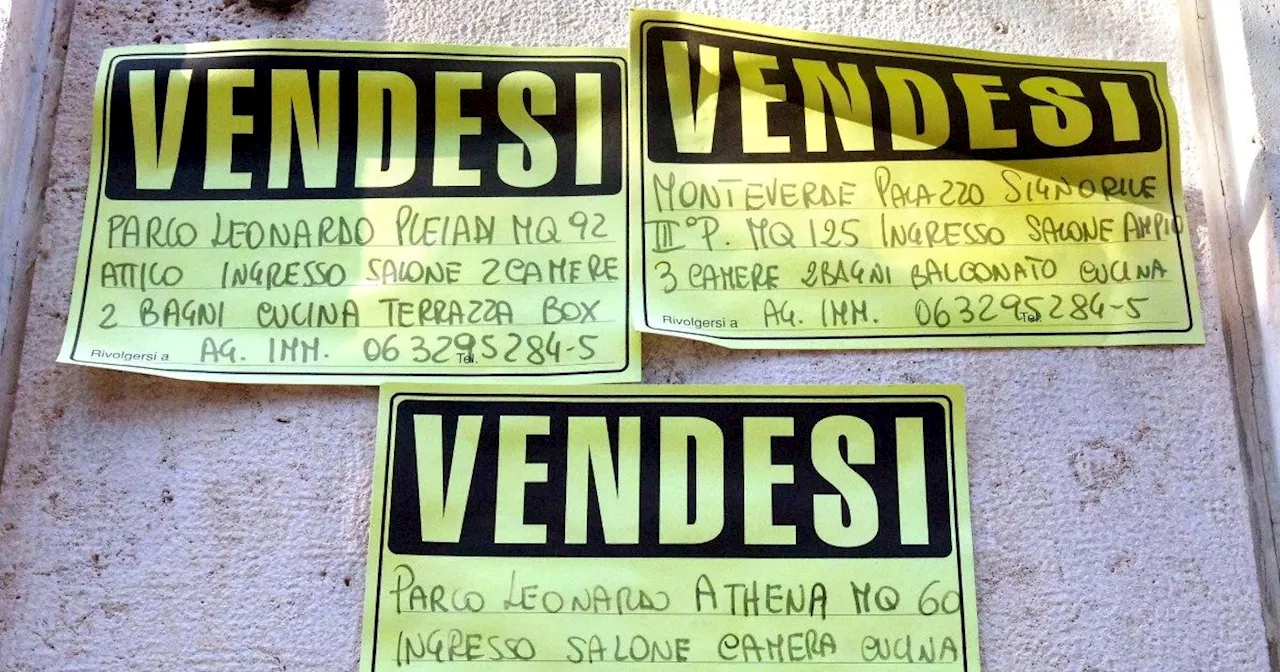 VENDESI
PARCO LEONARDO PLEIADI MQ 92
ATTICO INGRESSO SALONE 2 CAMERE
2 BAGNI CUCINA TERRAZZA BOX
Rivolgersi a AG. IMM. Tel. 063295284-5
VENDESI
MONTEVERDE PALAZZO SIGNORILE
III° P. MQ 125 INGRESSO SALONE AMPIO
3 CAMERE 2 BAGNI BALCONATO CUCINA
Rivolgersi a AG. IMM. Tel. 063295284-5
VENDESI
PARCO LEONARDO ATHENA MQ 60
INGRESSO SALONE CAMERA CUCINA